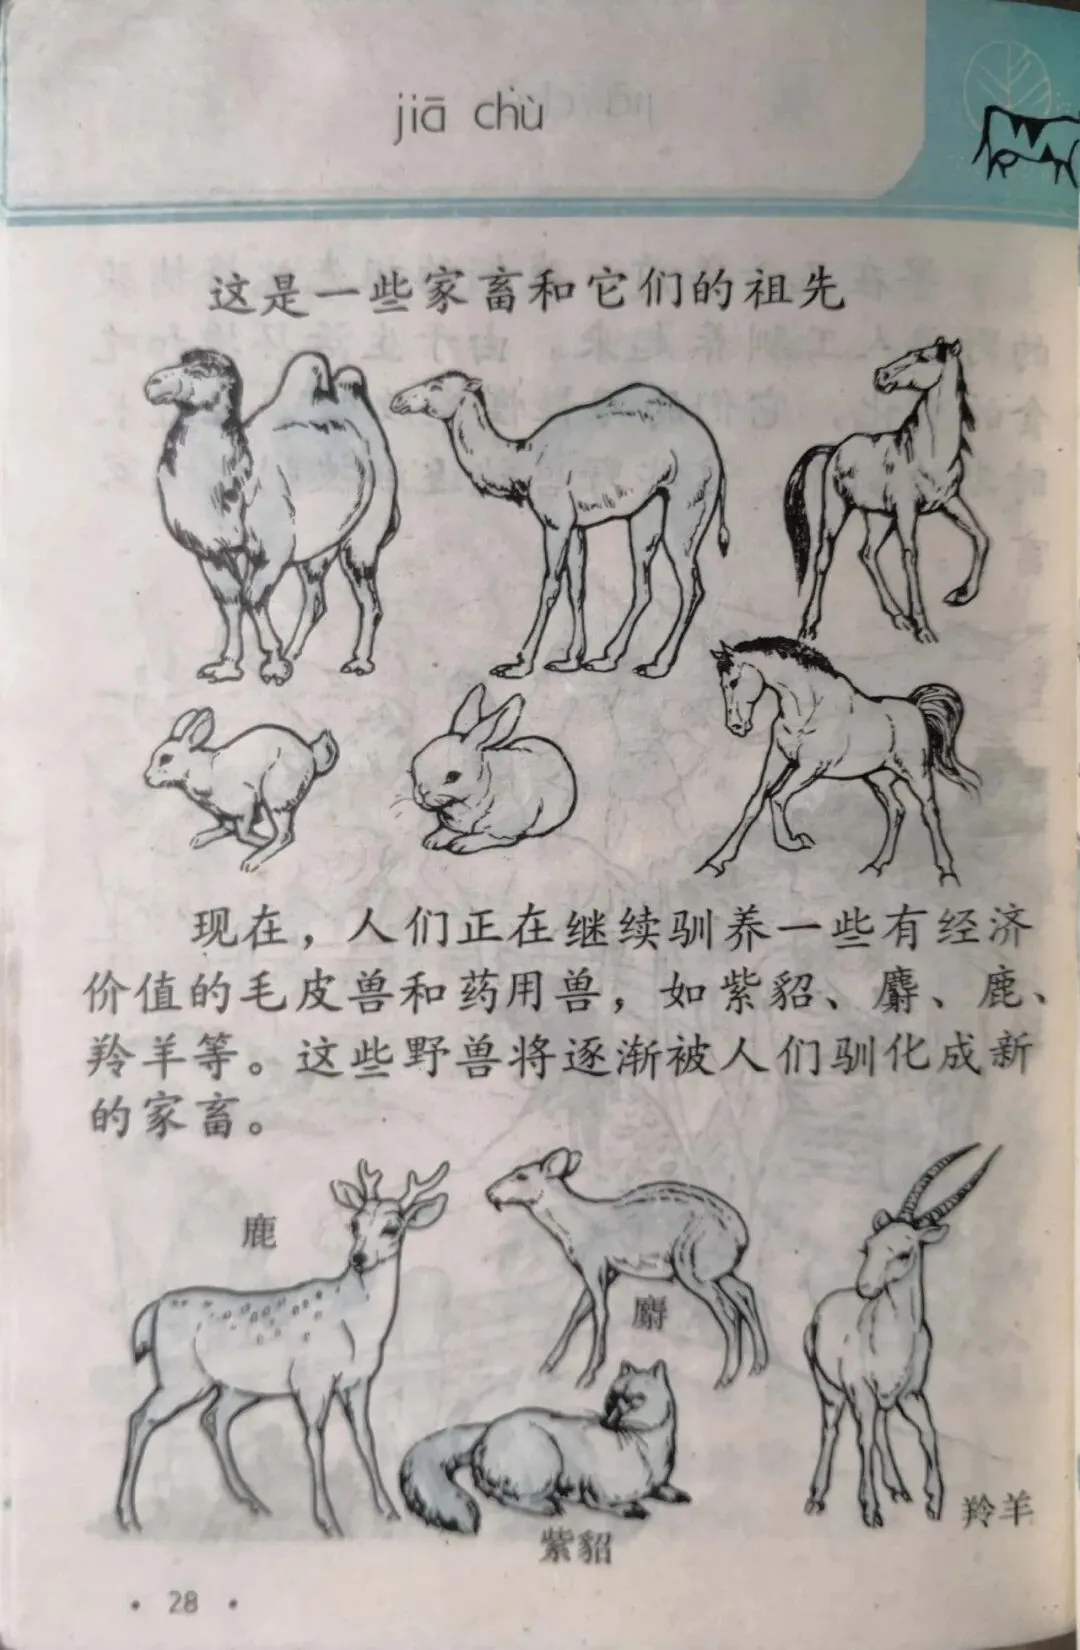 jiā chù
这是一些家畜和它们的祖先
现在，人们正在继续驯养一些有经济
价值的毛皮兽和药用兽，如紫貂、麝、鹿、
羚羊等。这些野兽将逐渐被人们驯化成新
的家畜。
鹿
麝
紫貂
羚羊
· 28 ·